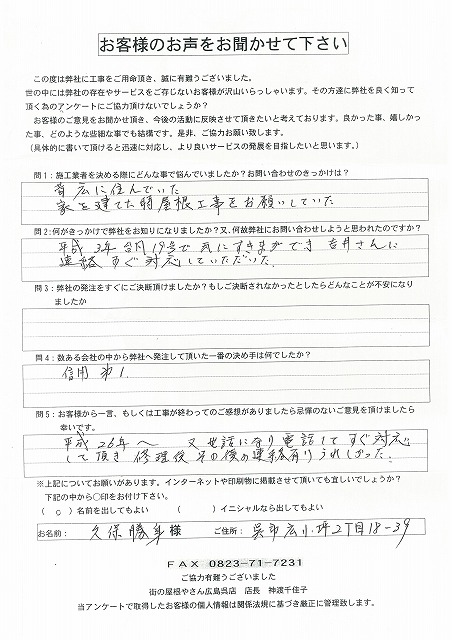 お客様のお声をお聞かせて下さい
この度は弊社に工事をご用命頂き、誠に有難うございました。
世の中には弊社の存在やサービスをご存じないお客様が沢山いらっしゃいます。その方達に弊社を良く知って
頂く為のアンケートにご協力頂けないでしょうか?
お客様のご意見をお聞かせ頂き、今後の活動に反映させて頂きたいと考えております。良かった事、嬉しかっ
た事、どのような些細な事でも結構です。是非、ご協力お願い致します。
(具体的に書いて頂けると迅速に対応し、より良いサービスの発展を目指したいと思います。)
問1:施工業者を決める際にどんな事で悩んでいましたか?お問い合わせのきっかけは?
昔広に住んでいた
家を建てた時屋根工事をお願いしていた
問2:何がきっかけで弊社をお知りになりましたか?又、何故弊社にお問い合わせしようと思われたのですか?
平成3年 台風19号で瓦にすきまができ 吉井さんに
連絡すぐ対応していただいた
問3:弊社の発注をすぐにご決断頂けましたか?もしご決断されなかったとしたらどんなことが不安になり
ましたか
問4:数ある会社の中から弊社へ発注して頂いた一番の決め手は何でしたか?
信用第1.
問5:お客様から一言、もしくは工事が終わってのご感想がありましたら忌憚のないご意見を頂けましたら
幸いです。
平成26年へ 又世話になり電話してすぐ対応
して頂き 修理後その後の連絡有りうれしかった.
※上記についてお願いがあります。インターネットや印刷物に掲載させて頂いても宜しいでしょうか?
下記の中から○印をお付け下さい。
( ○ )名前を出してもよい ( )イニシャルなら出してもよい
お名前: 久保勝 様 ご住所: 呉市広小坪2丁目18-39
FAX 0823-71-7231
ご協力有難うございました
街の屋根やさん広島呉店 店長 神渡千佳子
当アンケートで取得したお客様の個人情報は関係法規に基づき厳正に管理致します。